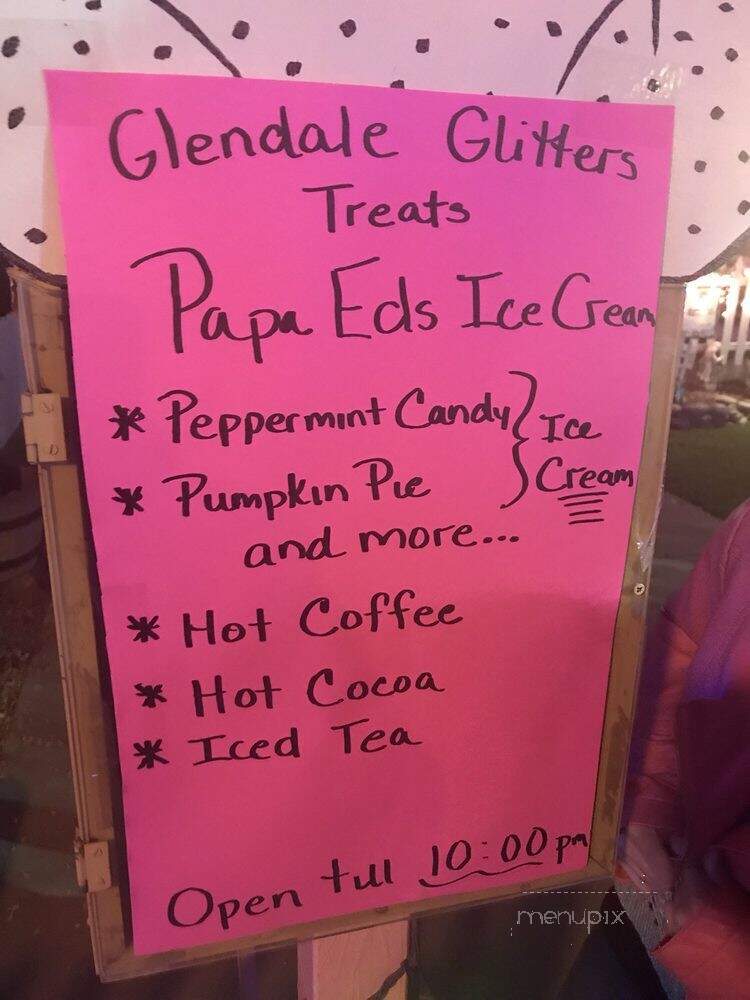 Glendale Glitters
Treats
Papa Eds Ice Cream
* Peppermint Candy } Ice
* Pumpkin Pie } Cream
and more...
* Hot Coffee
* Hot Cocoa
* Iced Tea
Open till 10:00 pm
menupix